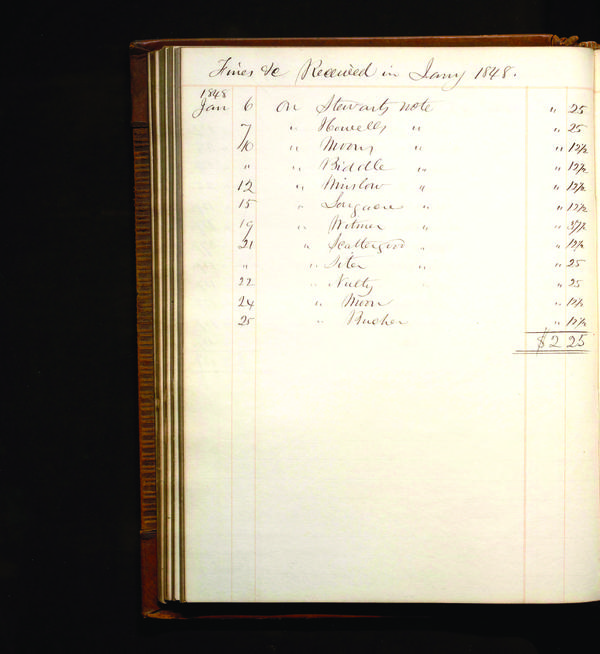 Fines &c Received in Jany 1848.
1848
Jan 6 on Stewarts note " 25
7 " Howells " " 25
10 " Moons " " 12½
" " Biddle " " 12½
12 " Winslow " " 12½
15 " " " 12½
19 " Witmer " " 37½
21 " Scattergood " " 12½
" " Siter " " 25
22 " Nulty " " 25
24 " Moon " 12½
25 " Bucher " 12½
$ 2 25